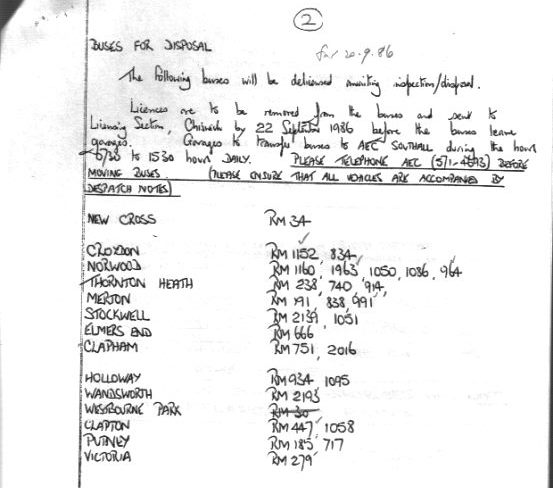 2
BUSES FOR DISPOSAL
for 20.9.86
The following buses will be delicensed awaiting inspection/disposal.
Licences are to be removed from the buses and sent to
Licensing Section, Chiswick by 22 September 1986 before the buses leave
garages. Garages to transfer buses to AEC SOUTHALL during the hours
0730 to 1530 hours DAILY. PLEASE TELEPHONE AEC (571-4693) BEFORE
MOVING BUSES. (PLEASE ENSURE THAT ALL VEHICLES ARE ACCOMPANIED BY
DESPATCH NOTES)
NEW CROSS RM 34
CROYDON RM 1152, 834
NORWOOD RM 1160, 1963, 1050, 1086, 964
THORNTON HEATH RM 238, 740, 914
MERTON RM 191, 838, 991
STOCKWELL RM 2139, 1051
ELMERS END RM 666
CLAPHAM RM 751, 2016
HOLLOWAY RM 934, 1095
WANDSWORTH RM 2193
WESTBOURNE PARK RM 30
CLAPTON RM 447, 1058
PUTNEY RM 185, 717
VICTORIA RM 279